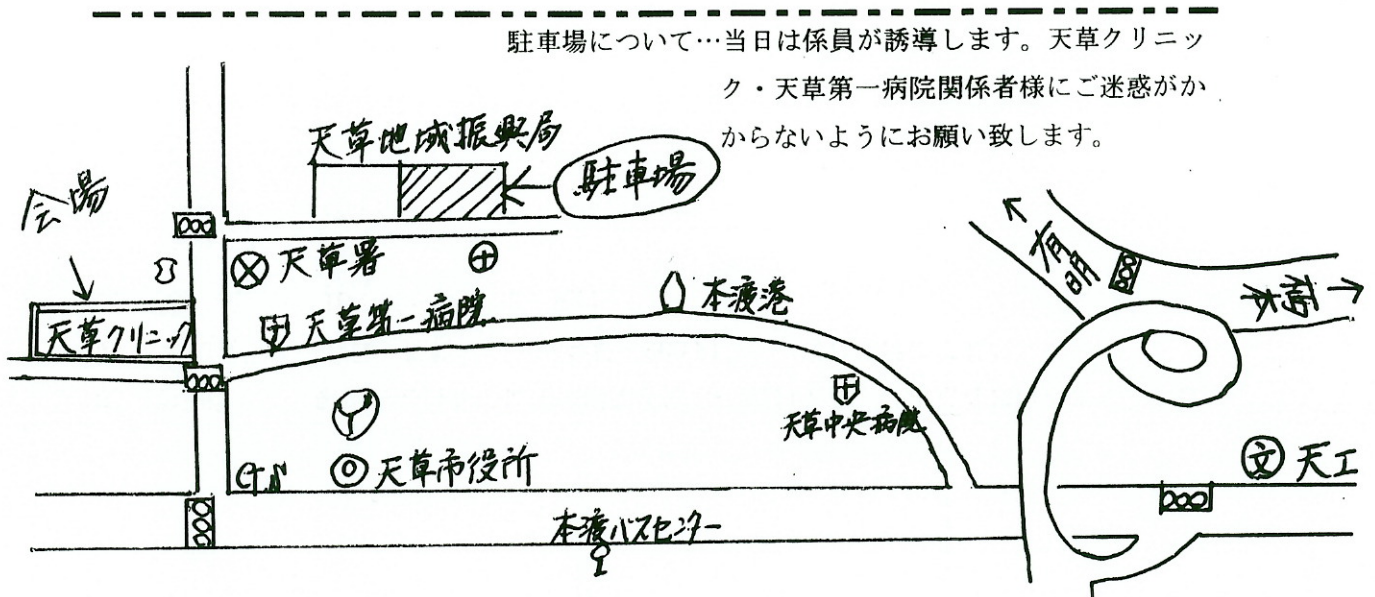 駐車場について…当日は係員が誘導します。天草クリニッ
ク・天草第一病院関係者様にご迷惑がか
からないようにお願い致します。
天草地域振興局
駐車場
会場
天草署
有明
本渡港
天草第一病院
天草クリニック
天草中央病院
G.S
天草市役所
文 天工
本渡バスセンター